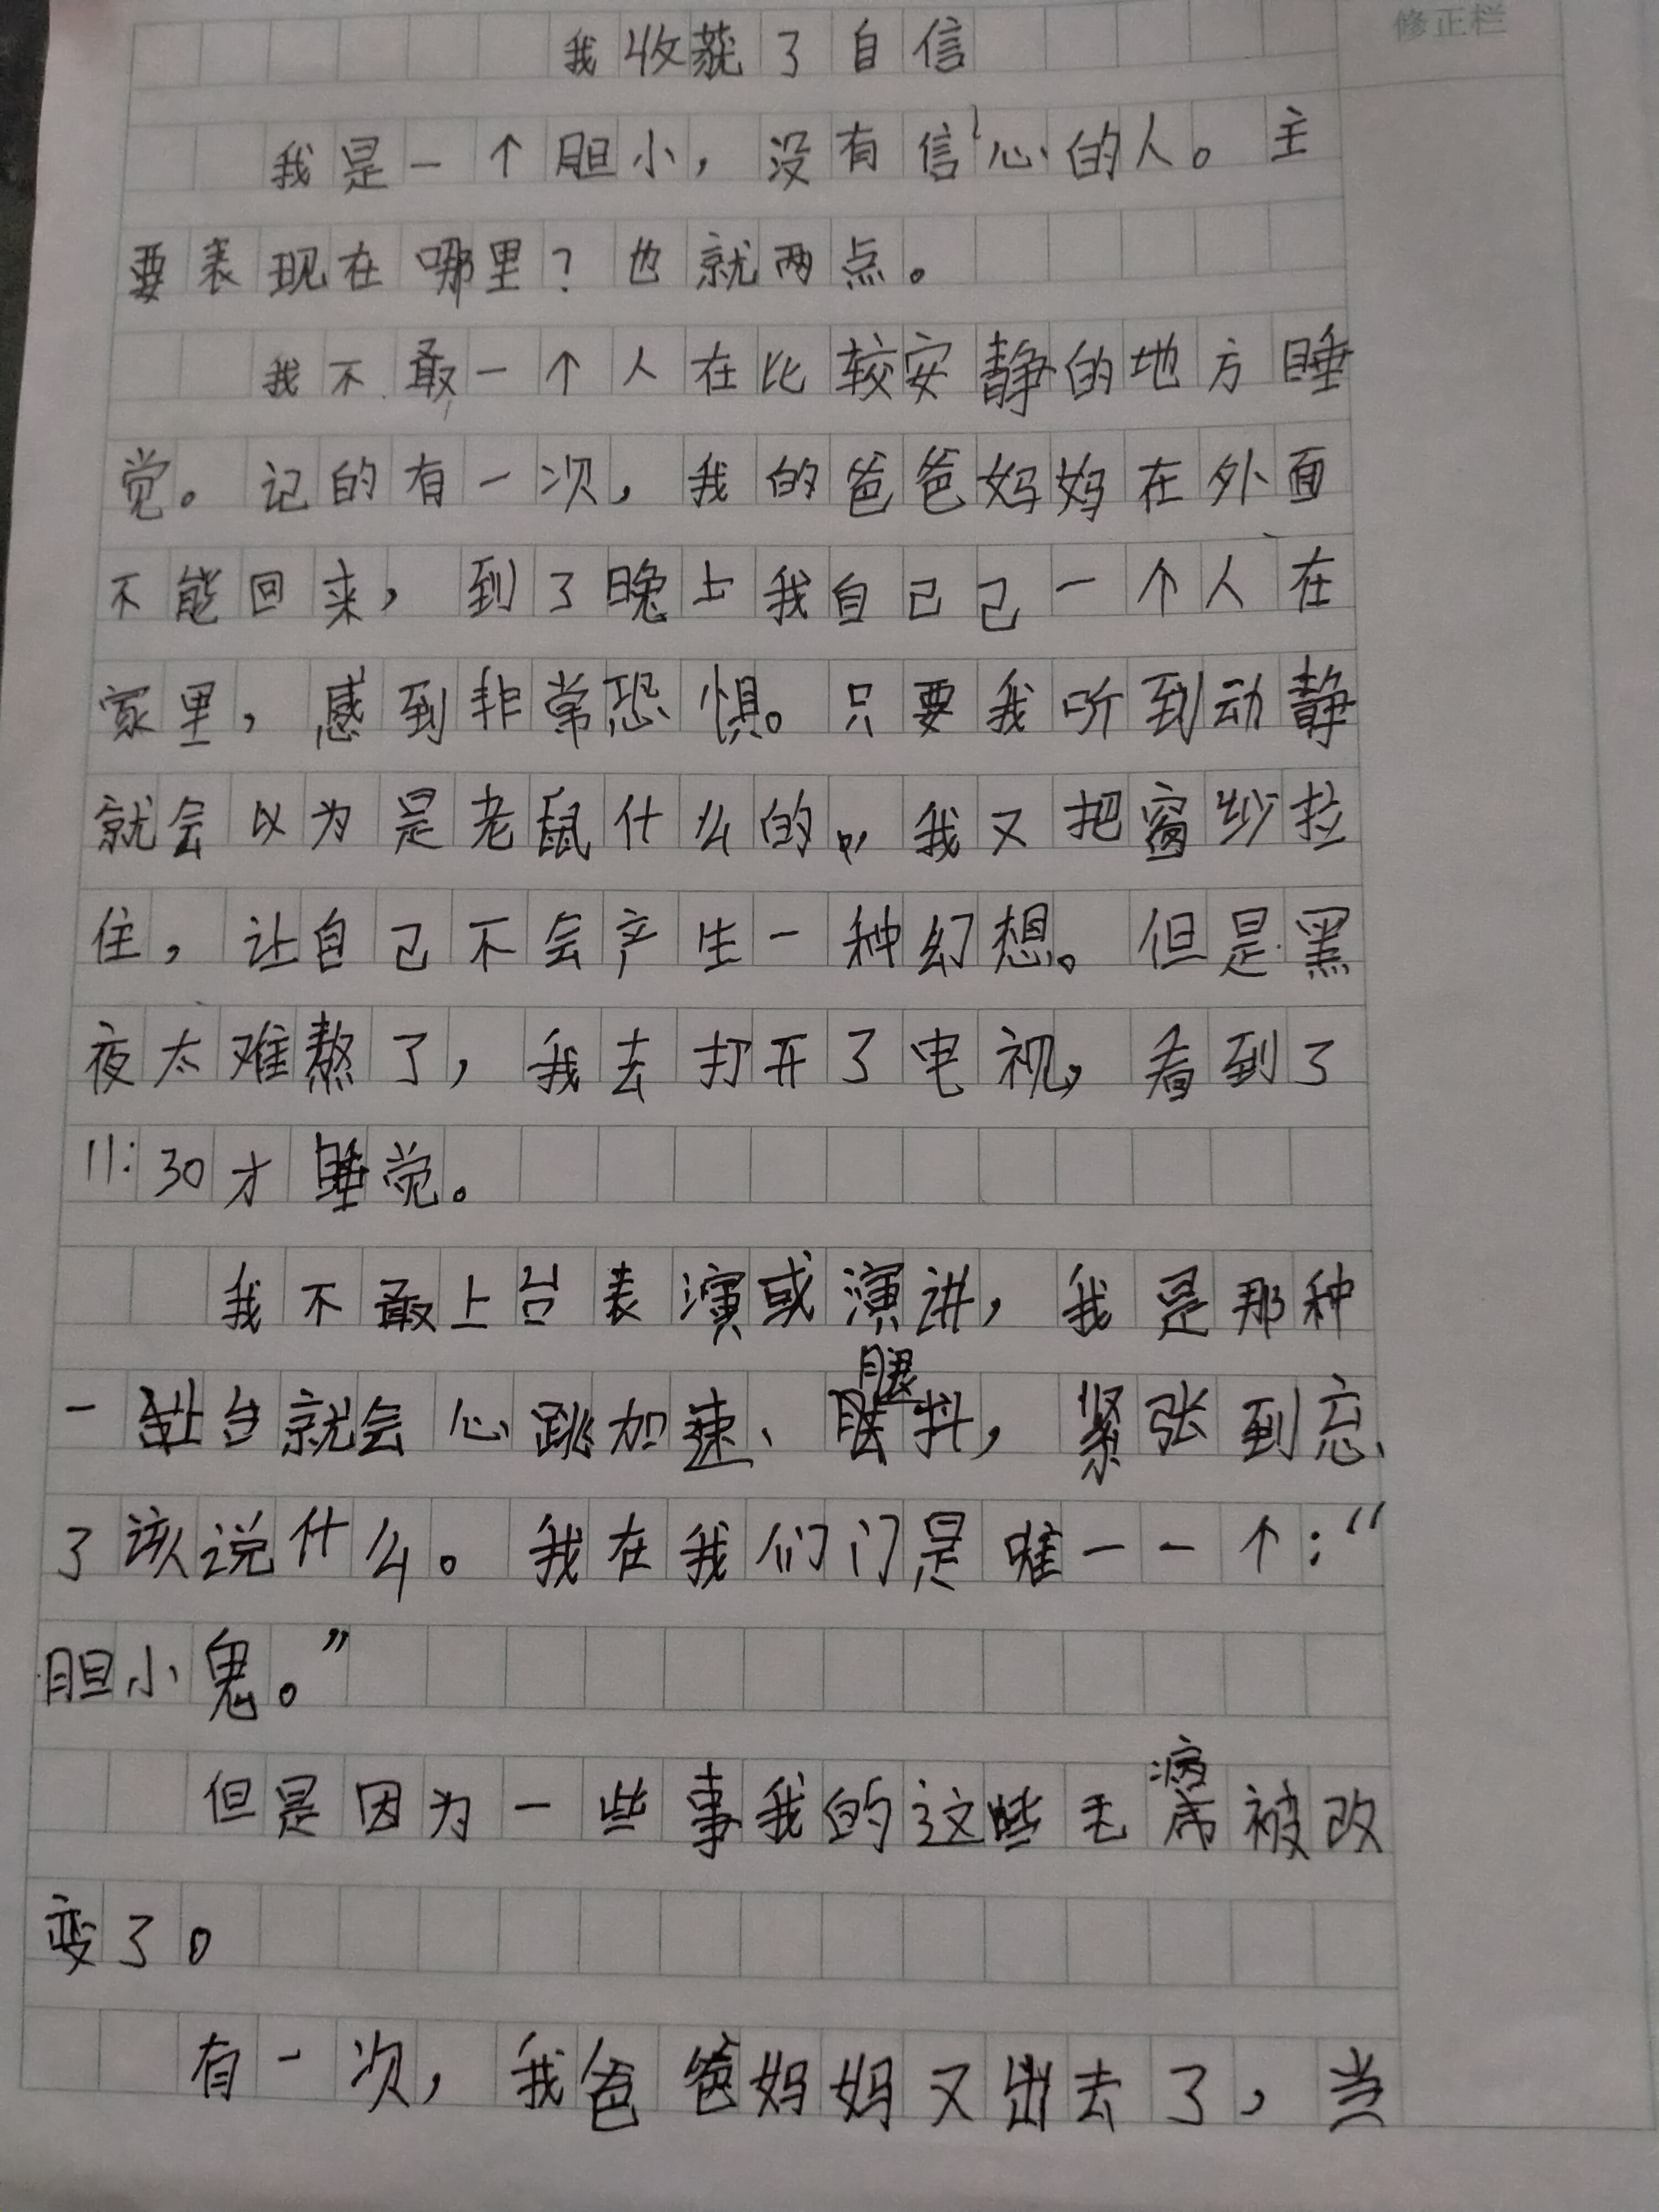 修正栏
我收获了自信
我是一个胆小，没有信心的人。主
要表现在哪里？也就两点。
我不敢一个人在比较安静的地方睡
觉。记的有一次，我的爸爸妈妈在外面
不能回来，到了晚上我自己己一个人在
家里，感到非常恐惧。只要我听到动静
就会以为是老鼠什么的。，我又把窗纱拉
住，让自己不会产生一种幻想。但是黑
夜太难熬了，我去打开了电视，看到了
11:30才睡觉。
我不敢上台表演或演讲，我是那种
一站台就会心跳加速、腿抖，紧张到忘
了该说什么。我在我们门是唯一一个：“
胆小鬼。”
但是因为一些事我的这些毛病被改
变了。
有一次，我爸爸妈妈又出去了，当